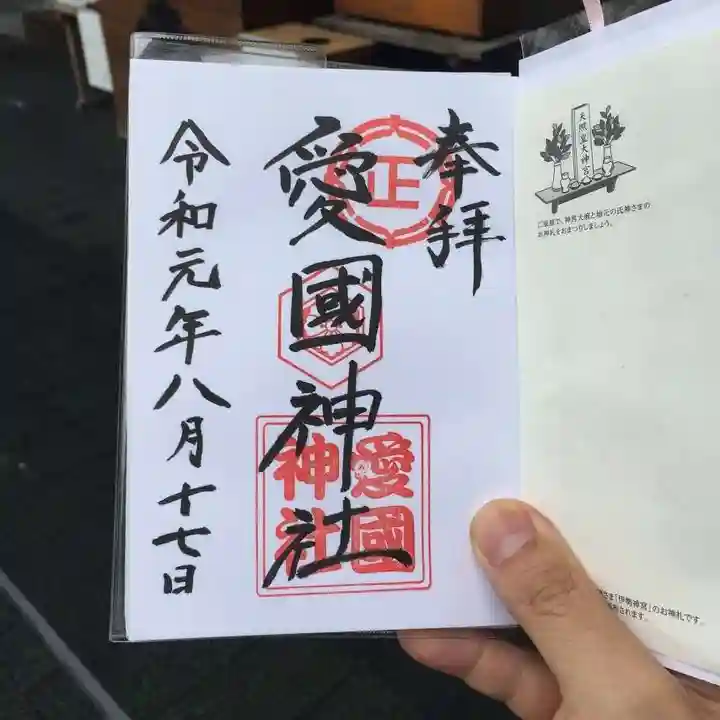 奉拝
正
愛國神社
愛國
神社
令和元年八月十七日
天照皇大神宮
ご家庭で、神宮大麻と地元の氏神さまの
お神札をおまつりしましょう。
さま「伊勢神宮」のお神札です。
されます。